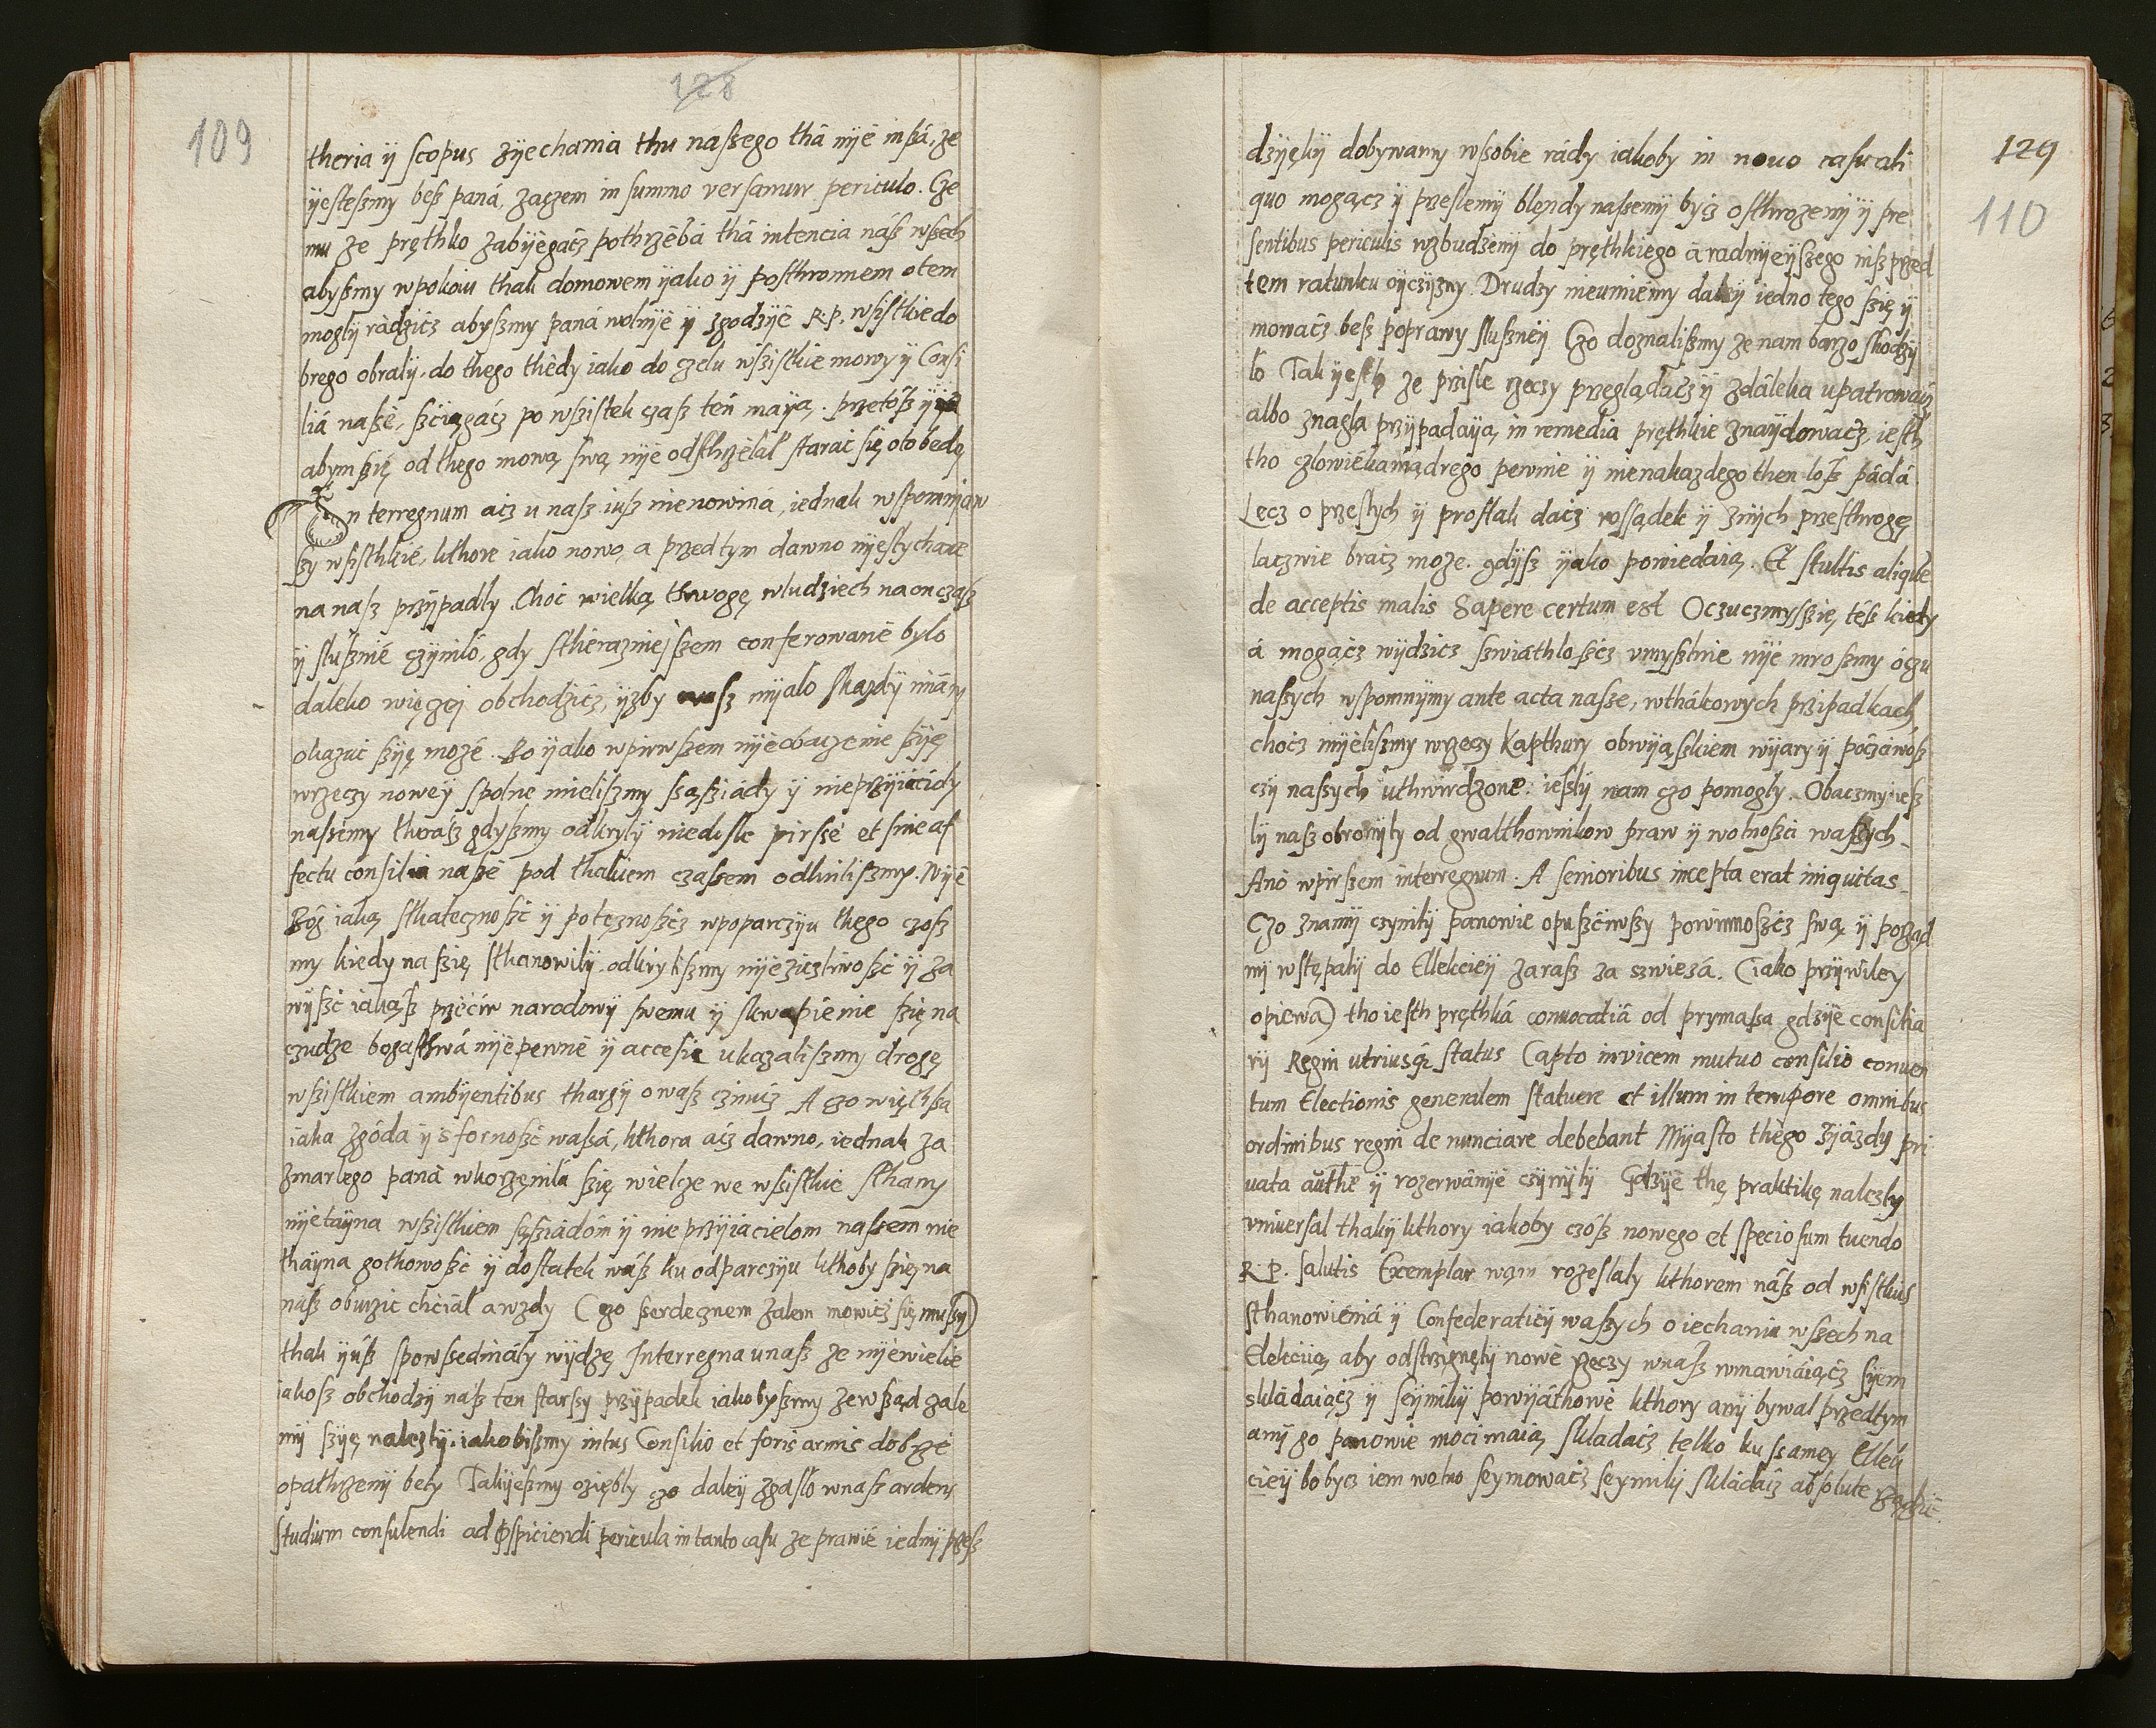 128
109
theria ÿ scopus zÿechania thu naszego thá nÿé inszá, ze
ÿestesmy besz paná, zaczem in summo versamur periculo. Cze
mu ze pręthko zabÿègácz pothrzébá thá intencia nász wszech
abyszmy w pokoiu thak domowem ÿako ÿ posthronnem o tem
moglÿ rádzicz abyszmy paná wolnÿé ÿ zgodzÿé R.P. wsistkie do
brego obralÿ. do thego thédy iako do czelu wszistkie mowy ÿ Consi
liá nasze, scziągácz po wszistek czasz ten maią. przetósz ÿ ÿa
abym szię od thego mową swą nÿe odsthrzélál starac się oto bedę
Interregnum acz u nasz iusz nie nowina, iednak wspomniaw
szy wsisthkié, kthore iako nowo, a przedtym dawno nÿeslychane
na nasz przÿpadly. Choc wielką thrwogę w ludziech na on czasz
ÿ slusznié czÿnilo, gdy sthérazniejszem conferowanié bylo
daleko więczej obchodzicz, ÿzby nasz mÿalo skazdÿ miáry
okazuie szÿę mozé. Bo ÿako w pirwszem nÿéobaczenie szÿę
w rzeczy nowey spolne mieliszmy ssąsziády ÿ nieprzÿiációly
naszemy therász gdyszmy odkrylÿ niedosle pirsse et sine af
fectu consilia nasze pod thakiem czassem odkriliszmy. Nÿé
Bóg iaką sthatecznoszc ÿ potęznoszcz w poparczÿu thego czosz
my kiedy na szię sthanowilÿ odkryliszmy nÿézicztiwoszc ÿ za
wÿszc iakąsz przéciw narodowÿ swemu ÿ skwapiénie szię na
czudze bogasthwá nÿépewné ÿ accesie ukazaliszmy drogę
wszistkiem ambÿentibus thargÿ o wasz czinicz A czo więthsza
iaka zgóda ÿ sfornoszc waszá, kthora acz dawno, iednak za
zmarlego paná wkorzęnila szię wielcze we wsistkie sthany
nÿétaÿna wszistkiem sąsziadóm ÿ nieprzÿiacielom naszem nie
thaÿna gothowoszc ÿ dostatek nász ku odparczÿu kthoby szię na
nasz oburzic chciál a wzdy (czo serdecznem zalem mowicz się muszy)
thak ÿusz spowssedniály wÿdzę Interregna u nasz ze nÿéwiele
iakosz obchodzÿ nasz ten starszy przÿpadek iakobyszmy zewsząd zale
nÿ szÿę nalezlÿ. iakobiszmy intus Consilio et foris armis dobrzé
opathrzenÿ bely Takÿeszmy oziębly czo daleÿ zgaslo w nasz ardens
studium consulendi ad pspiciendi pericula in tanto casu ze prawié iednÿ przesz
129
110
dzÿękÿ dobywamy w sobie rády iakoby in nouo casu ali
quo mogącz ÿ przeslemÿ blęndy naszemÿ bycz osthrozenÿ ÿ pre
sentibus periculis wzbudzenÿ do pręthkiego á radnÿeÿszego nisz przed
tem ratunku oÿczÿzny. Drudzy nieumiémy daleÿ iedno tego szię ÿ
mowacz besz poprawy slusznéÿ Czo doznaliszmy ze nam barzo skodzÿ
lo Tak ÿesth ze prziszle rzeczy przeglądacz ÿ zdáleka upatrowácz
albo znagla przÿpadaÿą in remedia pręthkie znaÿdowacz, iesth
tho czlowiéka mądrego pewnie ÿ nie na kazdego then losz páda.
Lecz o przeslych ÿ prostak dacz rossądek ÿ znich przesthrogę
laczwie bracz moze. gdÿsz ÿako powiedaią. Et stultis aliquid
de acceptis malis Sapere certum est Oczuczmysszię tész kiedy
á mogącz wÿdzicz szwiáthloszcz vmyszlnie nÿé mroszmy óczu
naszych wspomnÿmy ante acta nasze, w thákowych przipadkach
chocz mÿéliszmy w rzeczy kapthury obwÿąskiem wÿary ÿ poczáwosz
czÿ naszych uthwirdzone: ieslÿ nam czo pomogly. Obaczmy ies
lÿ nasz obronÿly od gwalthownikow praw ÿ wolnoszci waszych
Ano w pirszem interregnum. A senioribus incepta erat iniquitas
Czo znamÿ czynilÿ panowie opuszciwszy powinnoszcz swą ÿ poząd
nÿ wstępalÿ do Ellekcieÿ zarasz za szwieżá. (iako przÿwiley
opiewa) tho iesth pręthká conuocatiá od prymasa gdzÿé consilia
rÿ Regni utriusq status Capto invicem mutuo consilio conuen
tum Electionis generalem statuere et illum in tempore omnibus
ordinibus regni denunciare debebant Mÿasto thégo zjázdy pri
uata auth ÿ rozerwánÿe czÿnÿlÿ Gdzÿé thę praktikę nalezly
vniuersal thakÿ kthory iakoby czósz nowego et speciosum tuendo
R.P. salutis Exemplar wam rozeslaly kthorem nász od wsistkiego
sthanowiéniá ÿ Confederaticÿ waszych o iechaniu wszech na
Elekcią, aby odstrzignęlÿ nowé rzeczy w nasz wmawiáiącz syem
skládaiącz ÿ seÿmikÿ powÿáthowé kthory anÿ bywal przedtym
anÿ go panowie moci maią skladacz telko ku samey Ellek
cieÿ bo bycz iem wolno seymowacz seymikÿ skládacz absolute rządzic.